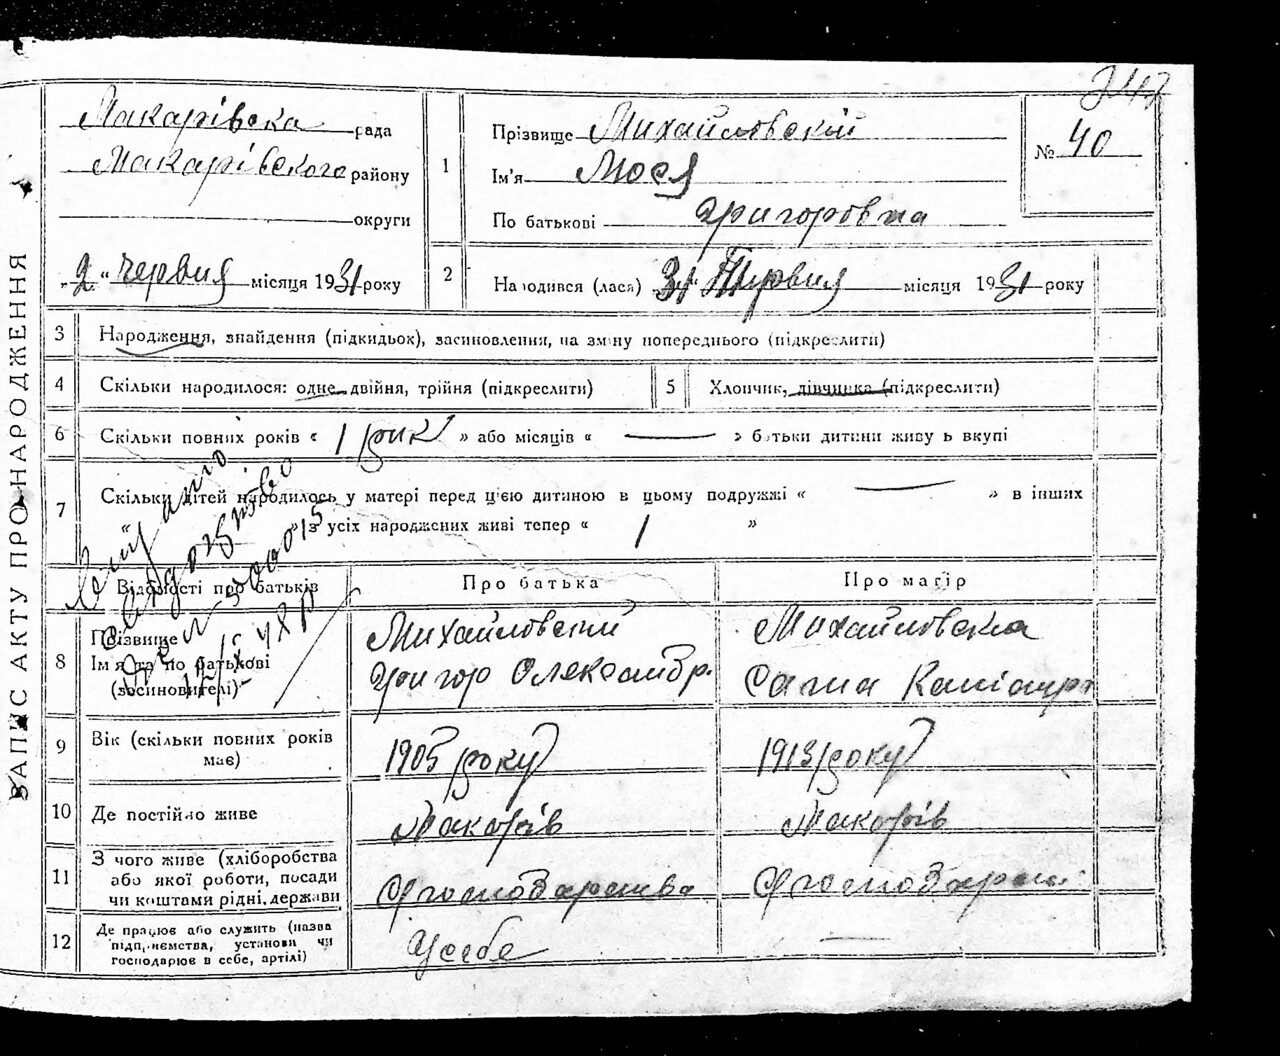 247
ЗАПИС АКТУ ПРО НАРОДЖЕННЯ
Макарівска рада
Макарівского району
округи
„2“ червня місяця 1931 року
1
Прізвище Михайловскій
Ім'я Люся
По батькові Григоровна
№ 40
2
Народився (лася) 31 місяця 1931 року
3 Народження, знайдення (підкидьок), засиновлення, на зміну попереднього (підкреслити)
4 Скільки народилося: одне двійня, трійня (підкреслити)
5 Хлопчик, дівчинка (підкреслити)
6 Скільки повних років « 1 рик » або місяців « — » батьки дитини живуть вкупі
7 Скільки дітей народилось у матері перед цією дитиною в цьому подружжі « — » в інших
« » з усіх народжених живі тепер « 1 »
Відомості про батьків
Про батька
Про матір
8 Прізвище
Ім'я та по батькові
(засиновителі)
Михайловский
Григор Олександр.
Михайловска
9 Вік (скільки повних років
має)
1905 року
1913 року
10 Де постійно живе
Макарів
Макарів
11 З чого живе (хліборобства
або якої роботи, посади
чи коштами рідні, держави
12 Де працює або служить (назва
підприємства, установи чи
господарює в себе, артілі)
У себе
—